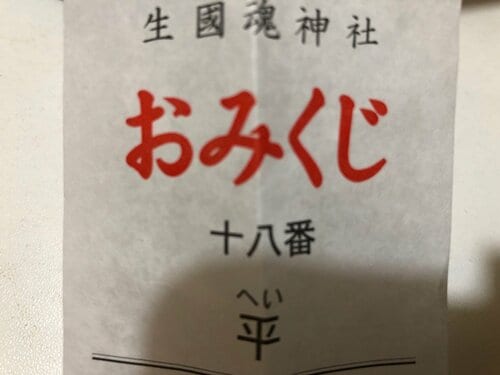 生國魂神社
おみくじ
十八番
へい
平